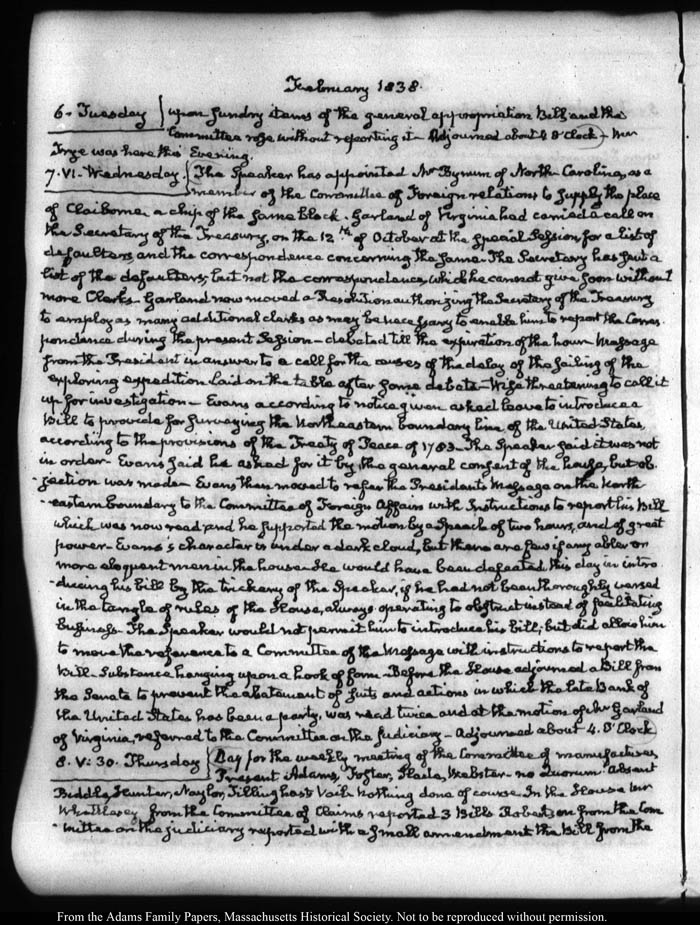 February 1838.
6. Tuesday } upon sundry items of the general appropriation Bill, and the
Committee rose without reporting it— Adjourned about 4 O'Clock— Mr
Frye was here this Evening.
7. VI. Wednesday { The Speaker has appointed Mr Bynum of North-Carolina, as a
member of the Committee of Foreign relations to supply the place
of Claiborne a chip of the same block. Garland of Virginia had carried a call on
the Secretary of the Treasury, on the 12th of October at the special Session for a list of
defaulters, and the correspondence concerning the same. The Secretary has sent a
list of the defaulters, but not the correspondence, which he cannot give soon without
more Clerks. Garland now moved a Resolution authorizing the Secretary of the Treasury
to employ as many additional clerks as may be necessary to enable him to report the Corres
pondence during the present Session— debated till the expiration of the hour— Message
from the President in answer to a call for the causes of the delay of the sailing of the
exploring expedition laid on the table after some debate— Wise threatening to call it
up for investigation— Evans according to notice given asked leave to introduce a
Bill to provide for surveying the Northeastern boundary line of the United States,
according to the provisions of the Treaty of Peace of 1783— The Speaker said it was not
in order— Evans said he asked for it by the general consent of the house, but ob
-jection was made— Evans then moved to refer the Presidents Message on the North
-eastern boundary to the Committee of Foreign Affairs with Instructions to report his Bill
which was now read and he supported the motion by a Speech of two hours, and of great
power— Evans's character is under a dark cloud, but there are few if any abler or
more eloquent men in the house. He would have been defeated this day in intro
-ducing his bill by the trickery of the Speaker, if he had not been thoroughly versed
in the tangle of rules of the House, always operating to obstruct instead of facilitating
business. The Speaker would not permit him to introduce his bill; but did allow him
to move the reference to a Committee of the Message with instructions to report the
Bill— Substance hanging upon a hook of form— Before the House adjourned a Bill from
the Senate to prevent the abatement of suits and actions in which the late Bank of
the United States has been a party, was read twice and at the motion of Mr Garland
of Virginia, referred to the Committee on the Judiciary— Adjourned about 4. O'Clock
8. V: 30. Thursday { Day for the weekly meeting of the Committee of manufactures,
Present Adams, Foster, Slade, Webster— no Quorum. Absent
Biddle, Hunter, Naylor, Tillinghast Vail. Nothing done of course. In the House Mr
Whittlesey from the Committee of Claims reported 3 Bills Robertson from the Com
-mittee on the judiciary reported with a small amendment the Bill from the
From the Adams Family Papers, Massachusetts Historical Society. Not to be reproduced without permission.